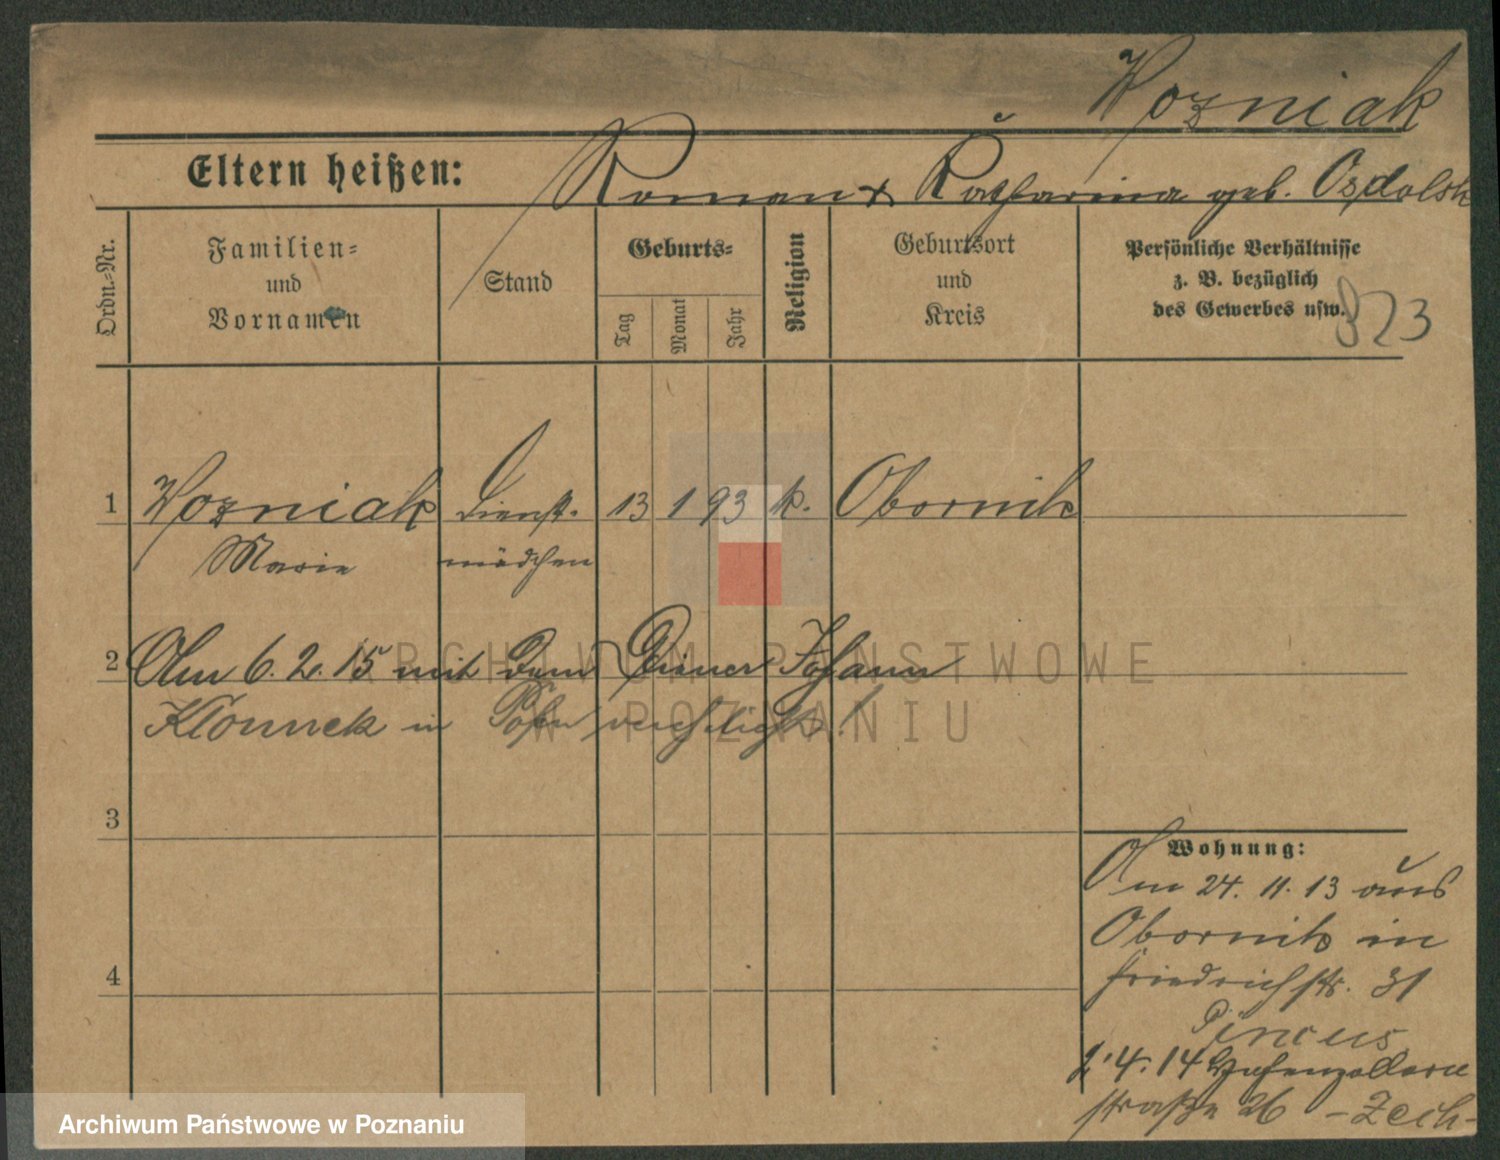 Wozniak
Eltern heißen: Roman & Katharina geb. Ozdolsk
Ordn.-Nr.
Familien-
und
Vornamen
Stand
Geburts-
Tag
Monat
Jahr
Religion
Geburtsort
und
Kreis
Persönliche Verhältnisse
z. B. bezüglich
des Gewerbes usw.
823
1 Wozniak Dienst- 13 1 93 k. Obornik
Marie mädchen
2 Am 6.2.15 mit dem Diener Johann
in Posen verehelicht!
3
4
Wohnung:
Am 24. 11. 13 aus
Obornik in
Friedrichstr. 31
Pincus
2.4.14 Hohenzollern
straße 26 - Zech-
ARCHIWUM PAŃSTWOWE
W POZNANIU
Archiwum Państwowe w Poznaniu